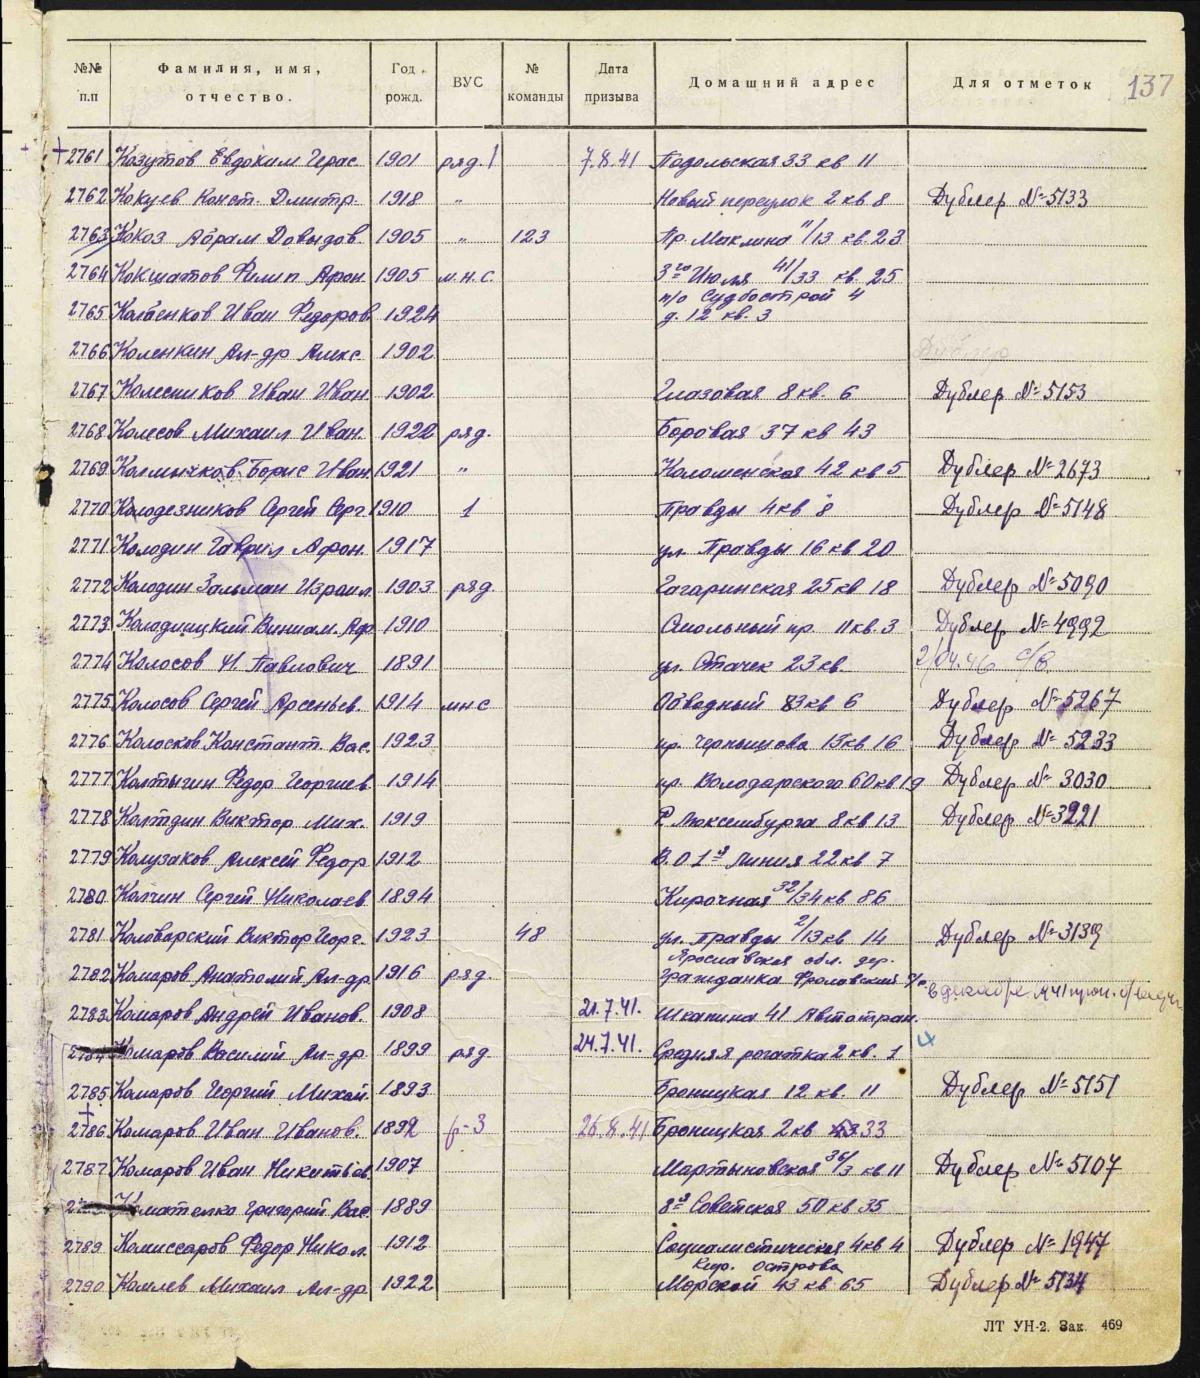 №№ п.п | Фамилия, имя, отчество. | Год рожд. | ВУС | № команды | Дата призыва | Домашний адрес | Для отметок
137
2761 Козутов Евдоким Герас. 1901 ряд. 1 7.8.41 Подольская 33 кв 11
2762 Кокуев Конст. Дмитр. 1918 " Новый переулок 2 кв 8 Дублер № 5133
2763 Кокоз Абрам Довыдов. 1905 " 123 Пр. Маклина 11/13 кв. 23
2764 Кокшатов Филип Афон. 1905 м.н.с. 3го Июля 41/33 кв. 25
2765 Колбенков Иван Федоров 1924 п/о Судбострой 4 д. 12 кв. 3
2766 Коленкин Ал-др Алекс. 1902 Дублер
2767 Колесников Иван Иван. 1902 Глазовая 8 кв. 6 Дублер № 5153
2768 Колесов Михаил Иван. 1922 ряд. Боровая 37 кв 43
2769 Колмычков Борис Иван 1921 " Коломенская 42 кв 5 Дублер № 2673
2770 Колодезников Сергей Серг. 1910 1 Правды 4 кв 8 Дублер № 5148
2771 Колодин Гаврил Афон. 1917 ул. Правды 16 кв 20
2772 Колодин Зальман Израил. 1903 ряд. Гагаринская 25 кв 18 Дублер № 5090
2773 Колодницкий Вениам. 1910 Смольный пр. 11 кв. 3 Дублер № 4992
2774 Колосов И. Павлович 1891 ул. Стачек 23 кв. 2/04.46 с/в.
2775 Колосов Сергей Арсеньев. 1914 мнс Обводный 83 кв 6 Дублер № 5267
2776 Колосков Констант. Вас. 1923 пр. Чернышова 13 кв 16 Дублер № 5233
2777 Колтыгин Федор Георгиев. 1914 пр. Володарского 60 кв 19 Дублер № 3030
2778 Колтдин Виктор Мих. 1919 Р Люксембурга 8 кв 13 Дублер № 3221
2779 Колузаков Алексей Федор 1912 В.О 1я Линия 22 кв 7
2780 Колчин Сергей Николаев. 1894 Кирочная 32/34 кв 86
2781 Коловарский Виктор Георг. 1923 48 ул. Правды 2/13 кв 14 Дублер № 3139
2782 Комаров Анатолий Ал-др. 1916 ряд. Ярославская обл. дер. Гражданка Фроловский
2783 Комаров Андрей Иванов. 1908 21.7.41. Шкапина 41 Автотран. в декабре 1941 проп.
2784 Комаров Василий Ал-др. 1899 ряд. 24.7.41. Средняя рогатка 2 кв. 1
2785 Комаров Георгий Михай. 1893 Броницкая 12 кв. 11 Дублер № 5151
2786 Комаров Иван Иванов. 1892 р-3 26.8.41 Броницкая 2 кв 33
2787 Комаров Иван Никитьев. 1907 Мартыновская 36/3 кв 11 Дублер № 5107
Комателко Григорий Вас. 1889 8я Советская 50 кв 35
2789 Комиссаров Федор Никол. 1912 Социалистическая 4 кв 4 Дублер № 1947
2790 Комлев Михаил Ал-др 1922 Кир. острова Морской 43 кв 65 Дублер № 5134
ЛТ УН-2. Зак. 469